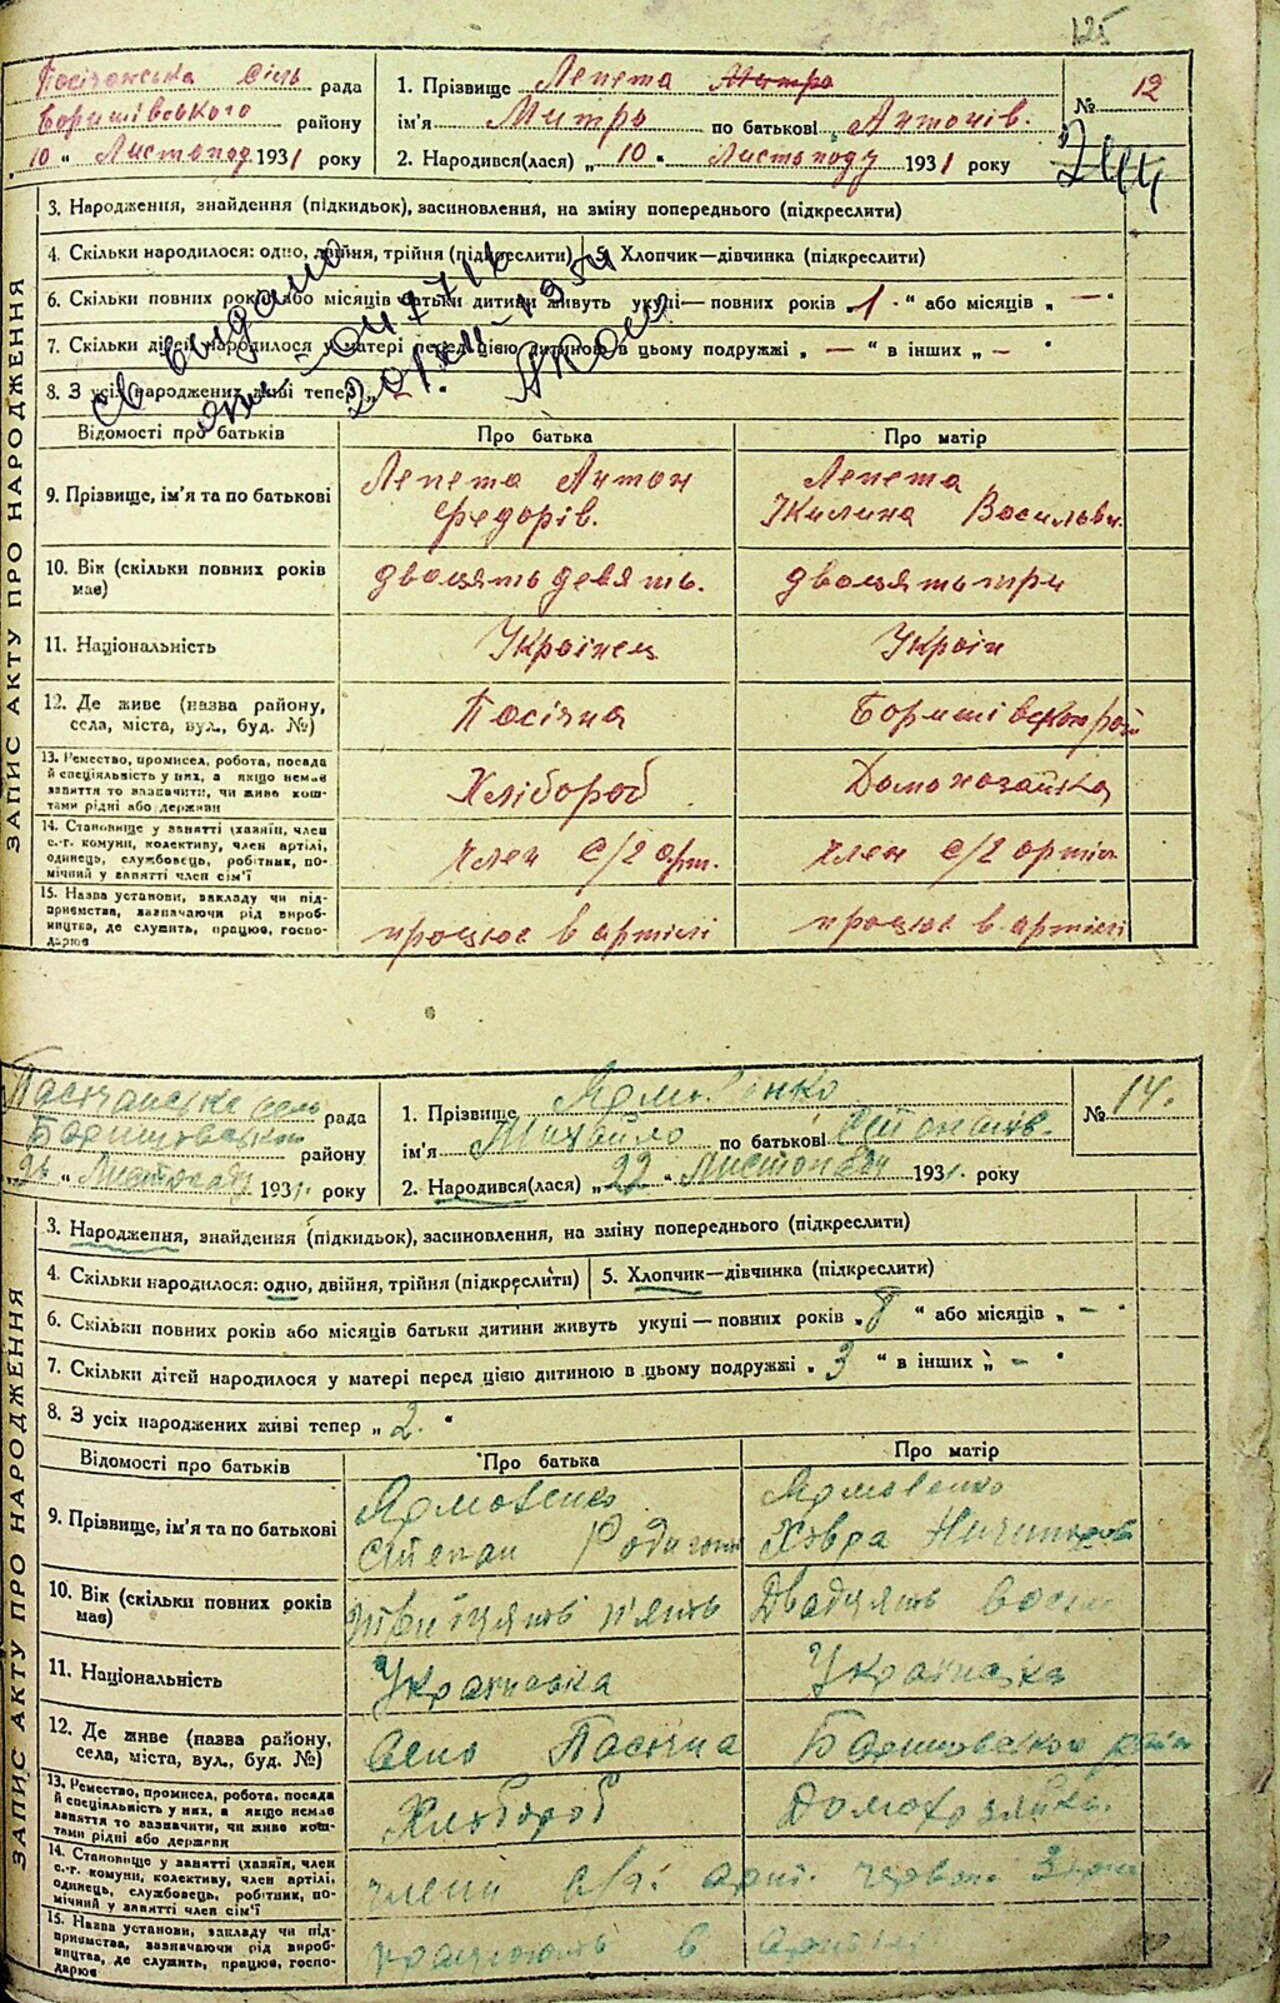 125
Посічанська сіль рада
Боришівського району
"10" Листопад 1931 року
1. Прізвище Лепета Митро
ім'я Митро по батькові Антонів.
2. Народився(лася) „10" Листопаду 1931 року
№ 12
244
ЗАПИС АКТУ ПРО НАРОДЖЕННЯ
3. Народження, знайдення (підкидьок), засиновлення, на зміну попереднього (підкреслити)
4. Скільки народилося: одно, двійня, трійня (підкреслити)
5. Хлопчик—дівчинка (підкреслити)
6. Скільки повних років або місяців батьки дитини живуть укупі—повних років „1" або місяців „—"
7. Скільки дітей народилося у матері перед цією дитиною в цьому подружжі „—" в інших „—"
8. З усіх народжених живі тепер „—"
Св видано
20/XII-1954
Відомості про батьків
Про батька
Про матір
9. Прізвище, ім'я та по батькові
Лепета Антон
Федорів.
Лепета
Килина Васильви.
10. Вік (скільки повних років
має)
двоцять девять.
двоцять три
11. Національність
Українец
Україн
12. Де живе (назва району,
села, міста, вул., буд. №)
Посічна
Боришівського рай
13. Ремество, промисел, робота, посада
й спеціяльність у них, а якщо немає
заняття то зазначити, чи живе кош-
тами рідні або держави
Хлібороб
Домохозайка
14. Становище у занятті (хазяїн, член
с.-г. комуни, колективу, член артілі,
одинець, службовець, робітник, по-
мічний у занятті член сім'ї
член с/г арт.
член с/г артіл
15. Назва установи, закладу чи під-
приємства, зазначаючи рід вироб-
ництва, де служить, працює, госпо-
дарює
процює в артілі
процює в артілі
Пасічанська сель рада
Баришовського району
"24" Листопаду 1931. року
1. Прізвище Ярмовенко
ім'я Михайло по батькові Степанів.
2. Народився(лася) „22" Листопаду 1931. року
№ 14.
ЗАПИС АКТУ ПРО НАРОДЖЕННЯ
3. Народження, знайдення (підкидьок), засиновлення, на зміну попереднього (підкреслити)
4. Скільки народилося: одно, двійня, трійня (підкреслити)
5. Хлопчик—дівчинка (підкреслити)
6. Скільки повних років або місяців батьки дитини живуть укупі—повних років „8" або місяців „—"
7. Скільки дітей народилося у матері перед цією дитиною в цьому подружжі „3" в інших „—"
8. З усіх народжених живі тепер „2."
Відомості про батьків
Про батька
Про матір
9. Прізвище, ім'я та по батькові
Ярмовенко
Степан
Ярмовенко
Хэвра Ничипоров
10. Вік (скільки повних років
має)
трицять п'ять
Двадцять восім
11. Національність
Українська
Українська
12. Де живе (назва району,
села, міста, вул., буд. №)
село Пасічна
Баришовського район
13. Ремество, промисел, робота, посада
й спеціяльність у них, а якщо немає
заняття то зазначити, чи живе кош-
тами рідні або держави
Хлібороб
Домохозяйка.
14. Становище у занятті (хазяїн, член
с.-г. комуни, колективу, член артілі,
одинець, службовець, робітник, по-
мічний у занятті член сім'ї
члени с/г. арт. червона Зоря
15. Назва установи, закладу чи під-
приємства, зазначаючи рід вироб-
ництва, де служить, працює, госпо-
дарює
працюють в артілі